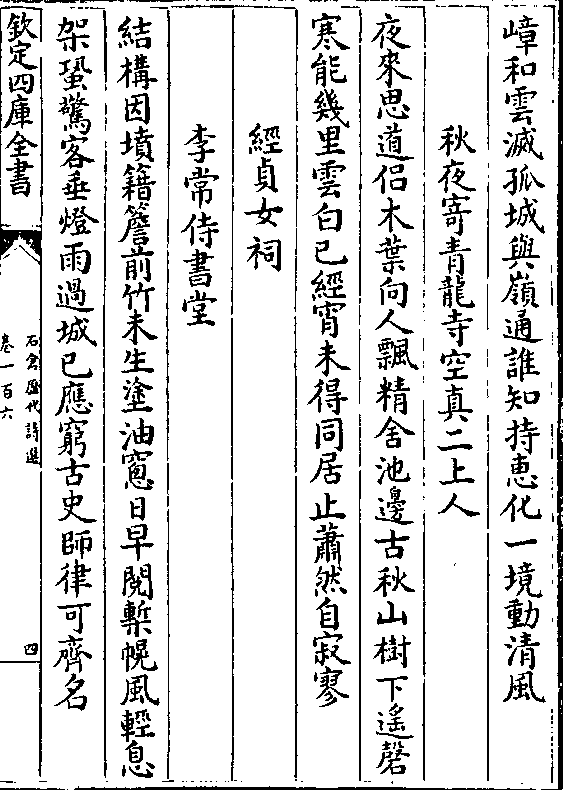 嶂和雲滅孤城與嶺通誰知持惠化一境動清風
秋夜寄青龍寺空真二上人
夜來思道侶木葉向人飄精舍池邊古秋山樹下遙磬
寒能幾里雲白已經宵未得同居止蕭然自寂寥
經貞女祠
李常侍書堂
結構因墳籍簷前竹未生塗油窻日早閱槧幌風輕息
架蛩驚客垂燈雨過城已應窮古史師律可齊名
欽定四庫全書
石倉歷代詩選
卷一百六
四